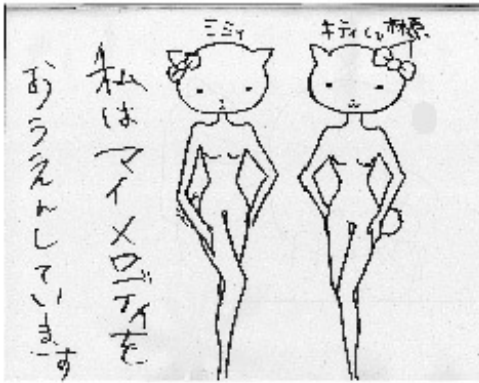 ミミィ
キティ
私はマイメロディを
おうえんしています